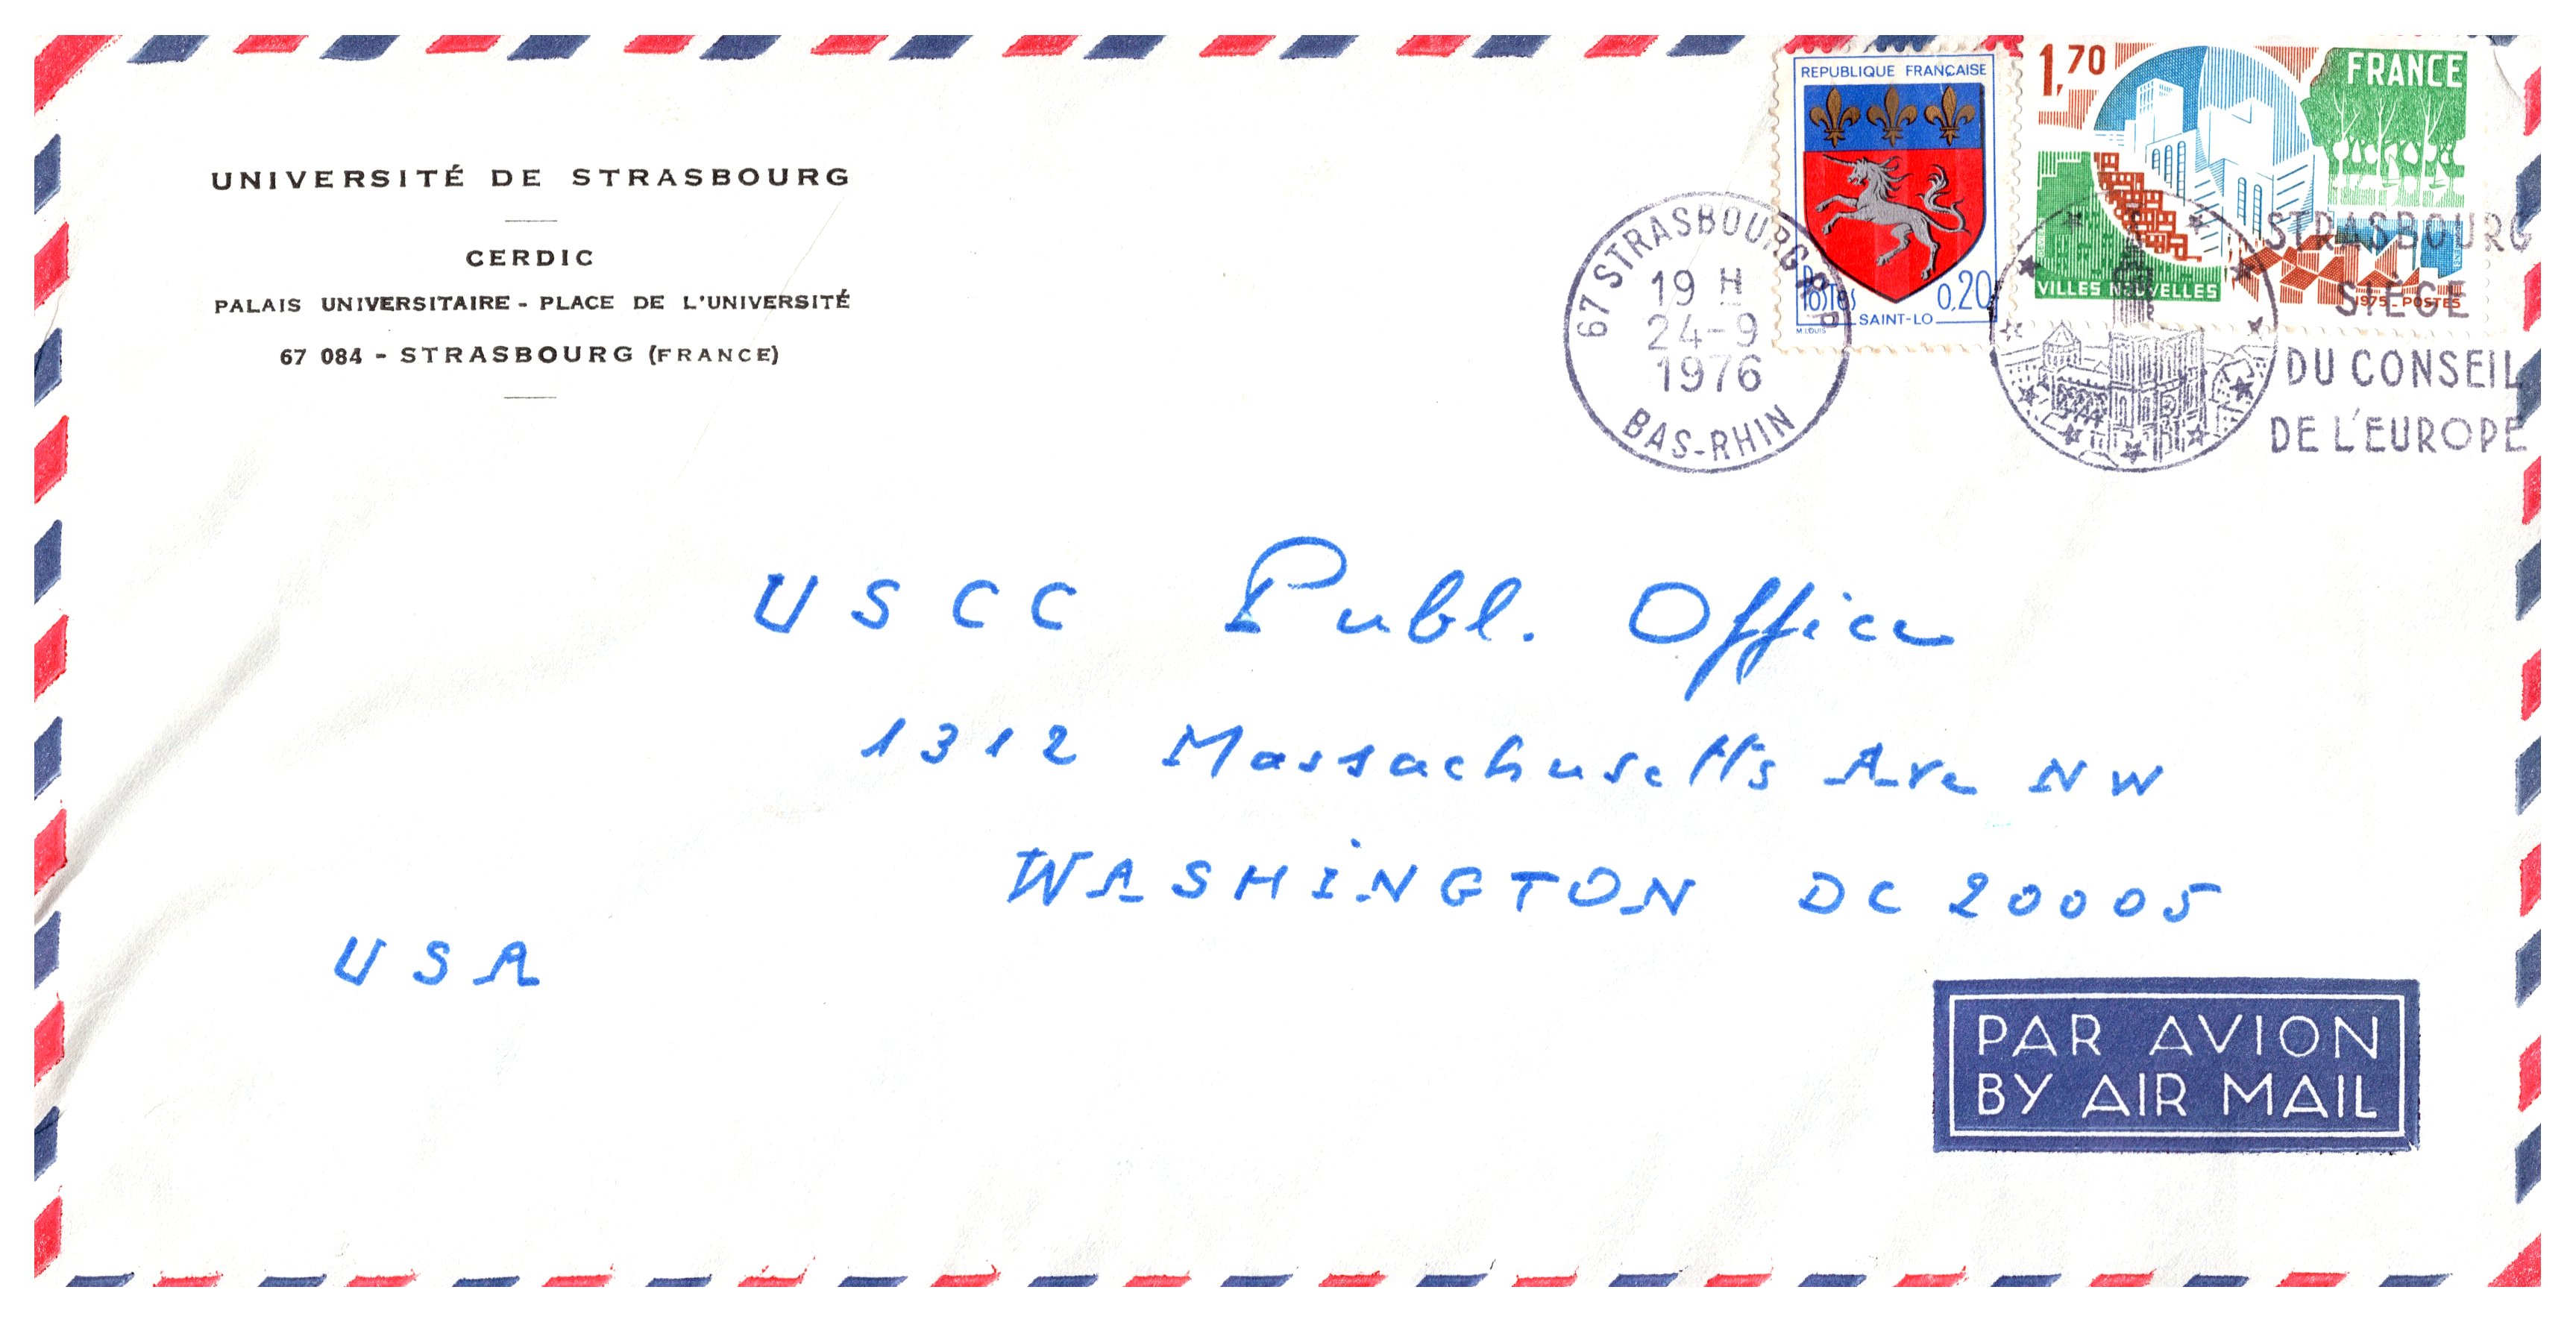 UNIVERSITÉ DE STRASBOURG
CERDIC
PALAIS UNIVERSITAIRE - PLACE DE L'UNIVERSITÉ
67 084 - STRASBOURG (FRANCE)
REPUBLIQUE FRANÇAISE
Postes 0,20
SAINT-LO
M. LOUIS
1,70
FRANCE
VILLES NOUVELLES
1975 - POSTES
67 STRASBOURG R P
19 H
24-9
1976
BAS-RHIN
STRASBOURG
SIÈGE
DU CONSEIL
DE L'EUROPE
USCC Publ. Office
1312 Massachusetts Ave NW
WASHINGTON DC 20005
USA
PAR AVION
BY AIR MAIL